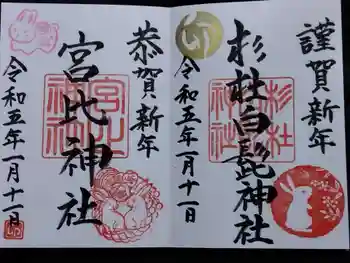 謹賀新年
杉杜白髭神社
令和五年一月十一日
卯
杉杜
神社
恭賀新年
宮比神社
令和五年一月十一日